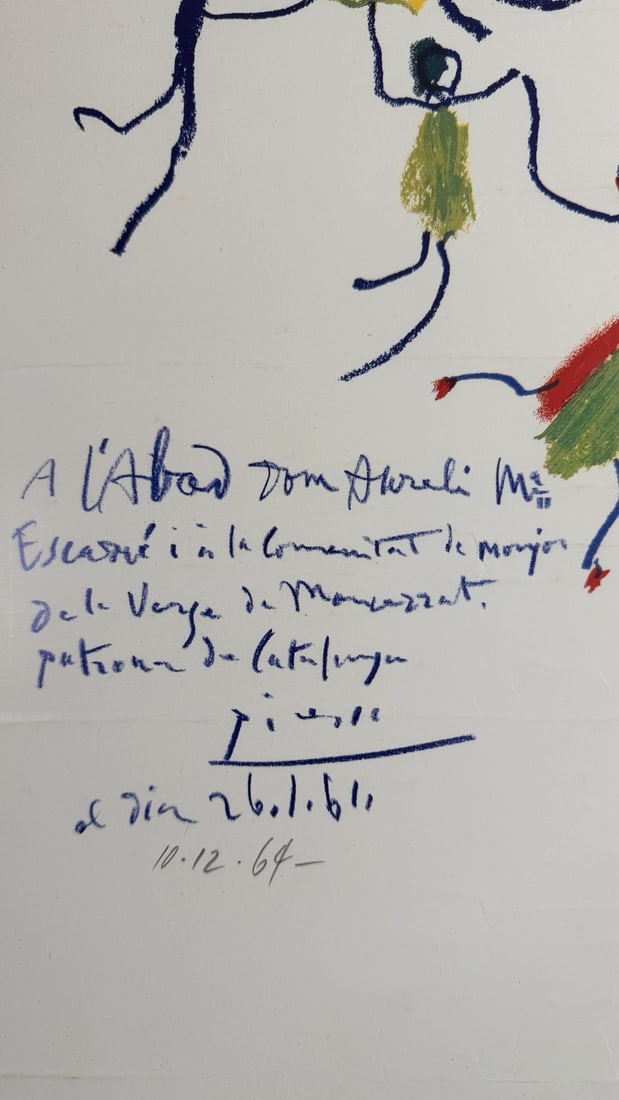 A l'Abad Dom Aureli Mª
Escarré i a la Comunitat de monjos
de la Verge de Monserrat.
patrona de Catalunya
Picasso
el dia 26.1.61.
10.12.64-